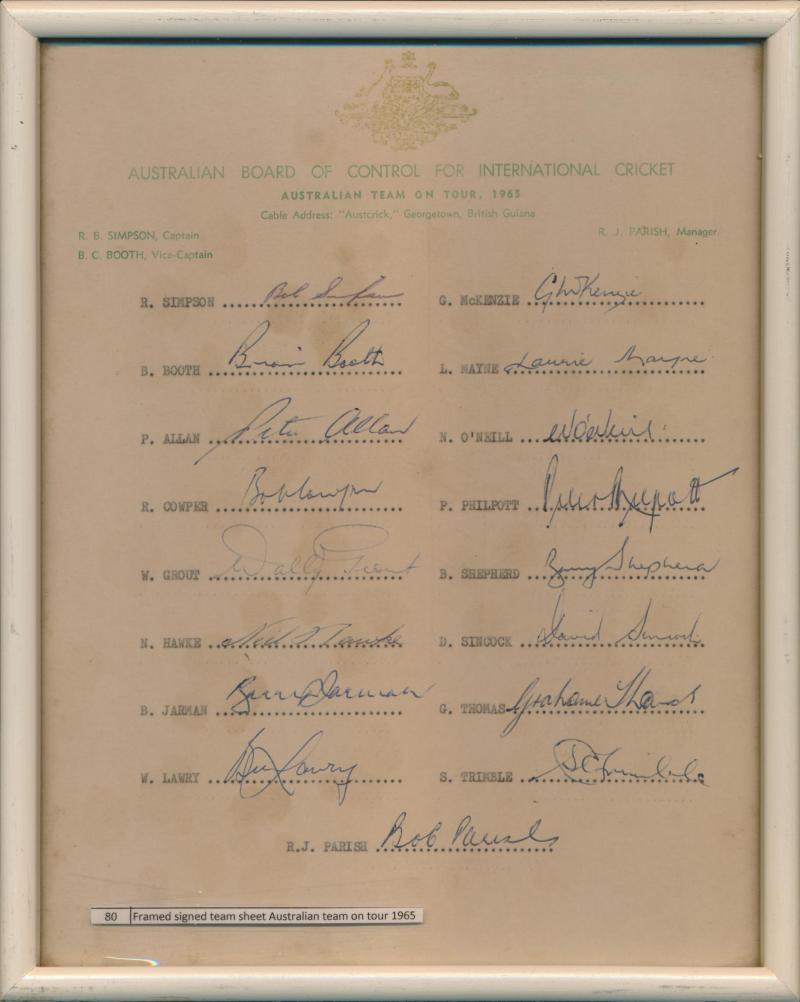 AUSTRALIAN BOARD OF CONTROL FOR INTERNATIONAL CRICKET
AUSTRALIAN TEAM ON TOUR, 1965
Cable Address: "Austcrick," Georgetown, British Guiana
R. B. SIMPSON, Captain
R. J. PARISH, Manager
B. C. BOOTH, Vice-Captain
R. SIMPSON Bob Simpson
G. McKENZIE G McKenzie
B. BOOTH Brian Booth
L. MAYNE Laurie Mayne
P. ALLAN Peter Allan
N. O'NEILL
R. COWPER Bob Cowper
P. PHILPOTT Peter Philpott
W. GROUT Wally Grout
B. SHEPHERD Barry Shepherd
N. HAWKE Neil Hawke
D. SINCOCK David Sincock
B. JARMAN Barry Jarman
G. THOMAS Grahame Thomas
W. LAWRY Bill Lawry
S. TRIMBLE S C Trimble
R.J. PARISH Bob Parish
80 Framed signed team sheet Australian team on tour 1965